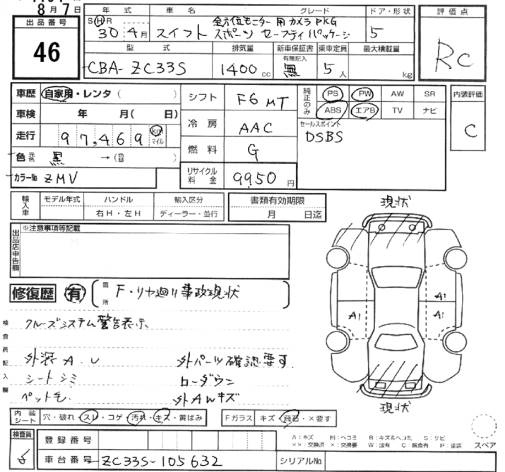 8月7日
出品番号
46
年式 車名 グレード ドア・形状 評価点
S H R
30年4月 スイフト
全方位モニター用カメラPKG
スポーツ セーフティパッケージ
5
RC
型式 排気量 新車保証書 乗車定員 最大積載量
有無記入
CBA-ZC33S 1400cc 無 5人 kg
車歴 自家用・レンタ( )
車検 年 月( 日)
走行 97,469 km マイル
色 黒 →( )
カラーNo ZMV
シフト F6MT
冷房 AAC
燃料 G
リサイクル料金 9950円
純正のみ
PS PW AW SR
ABS エアB TV ナビ
セールスポイント
DSBS
内装評価
C
輸入車
モデル年式 ハンドル 輸入区分
右H・左H ディーラー・並行
書類有効期限
月 日迄
出品店申告欄
※注意事項等記載
修復歴 有
箇所
F・リヤ廻り事故現状
検査員記入欄
クルーズシステム警告表示
外装A.U
シートシミ
ペット毛
外パーツ確認要す
ローダウン
外AWキズ
現状
A1 A1
A1
現状
内装シート 穴・破れ・スレ・コゲ・汚れ・キズ・黄ばみ
Fガラス キズ・飛石・×要す
検査員
登録番号
車台番号 ZC33S-105632
シリアルNo
A:キズ U:ヘコミ B:キズ&ヘコミ S:サビ
スペア